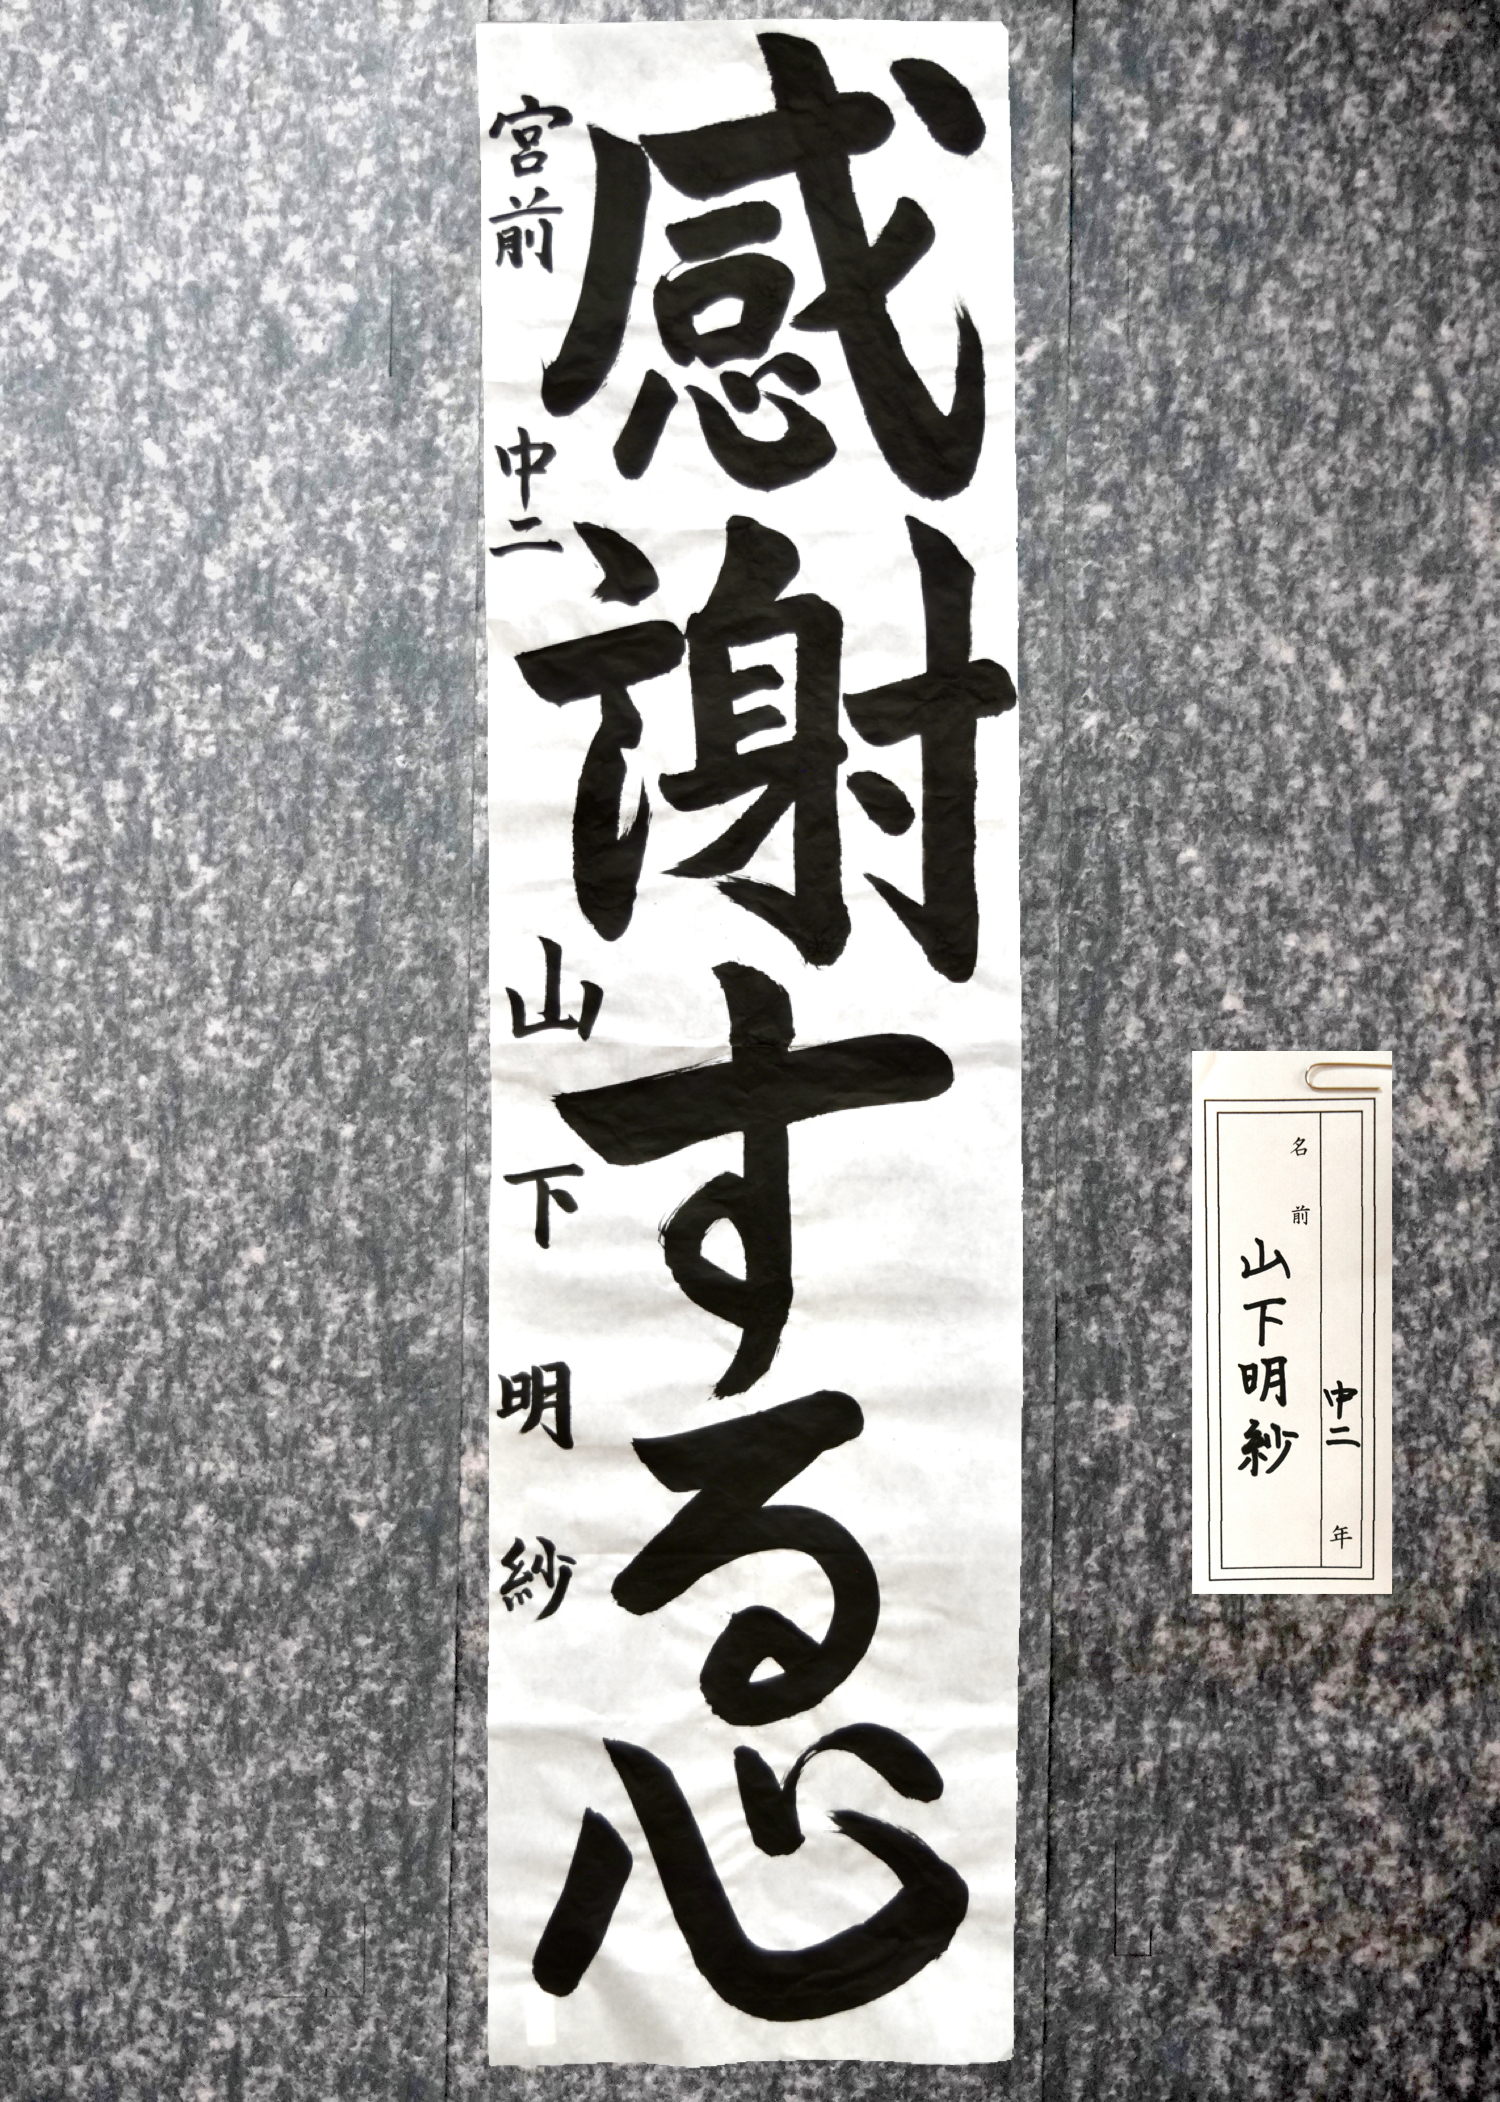 感謝する心
宮前 中二 山下明紗
中二年
名前 山下明紗